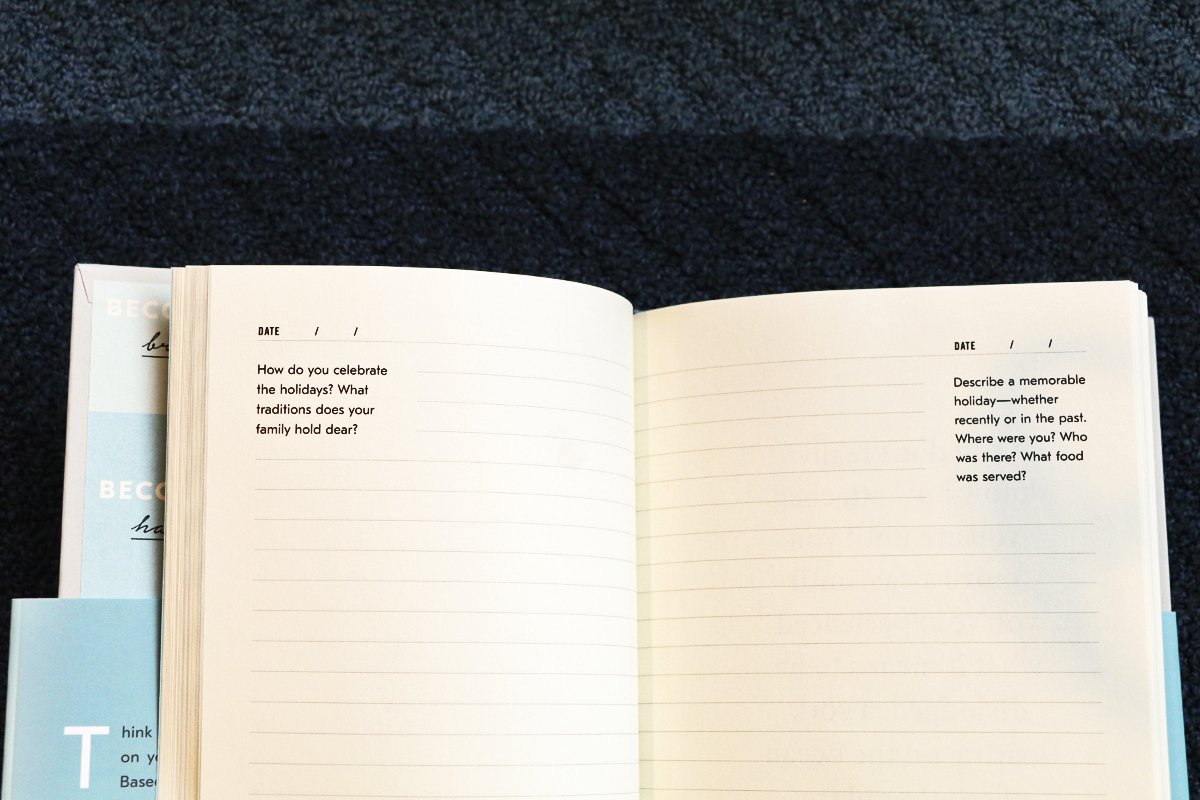 DATE / /
How do you celebrate
the holidays? What
traditions does your
family hold dear?
DATE / /
Describe a memorable
holiday—whether
recently or in the past.
Where were you? Who
was there? What food
was served?
hink
on
Think